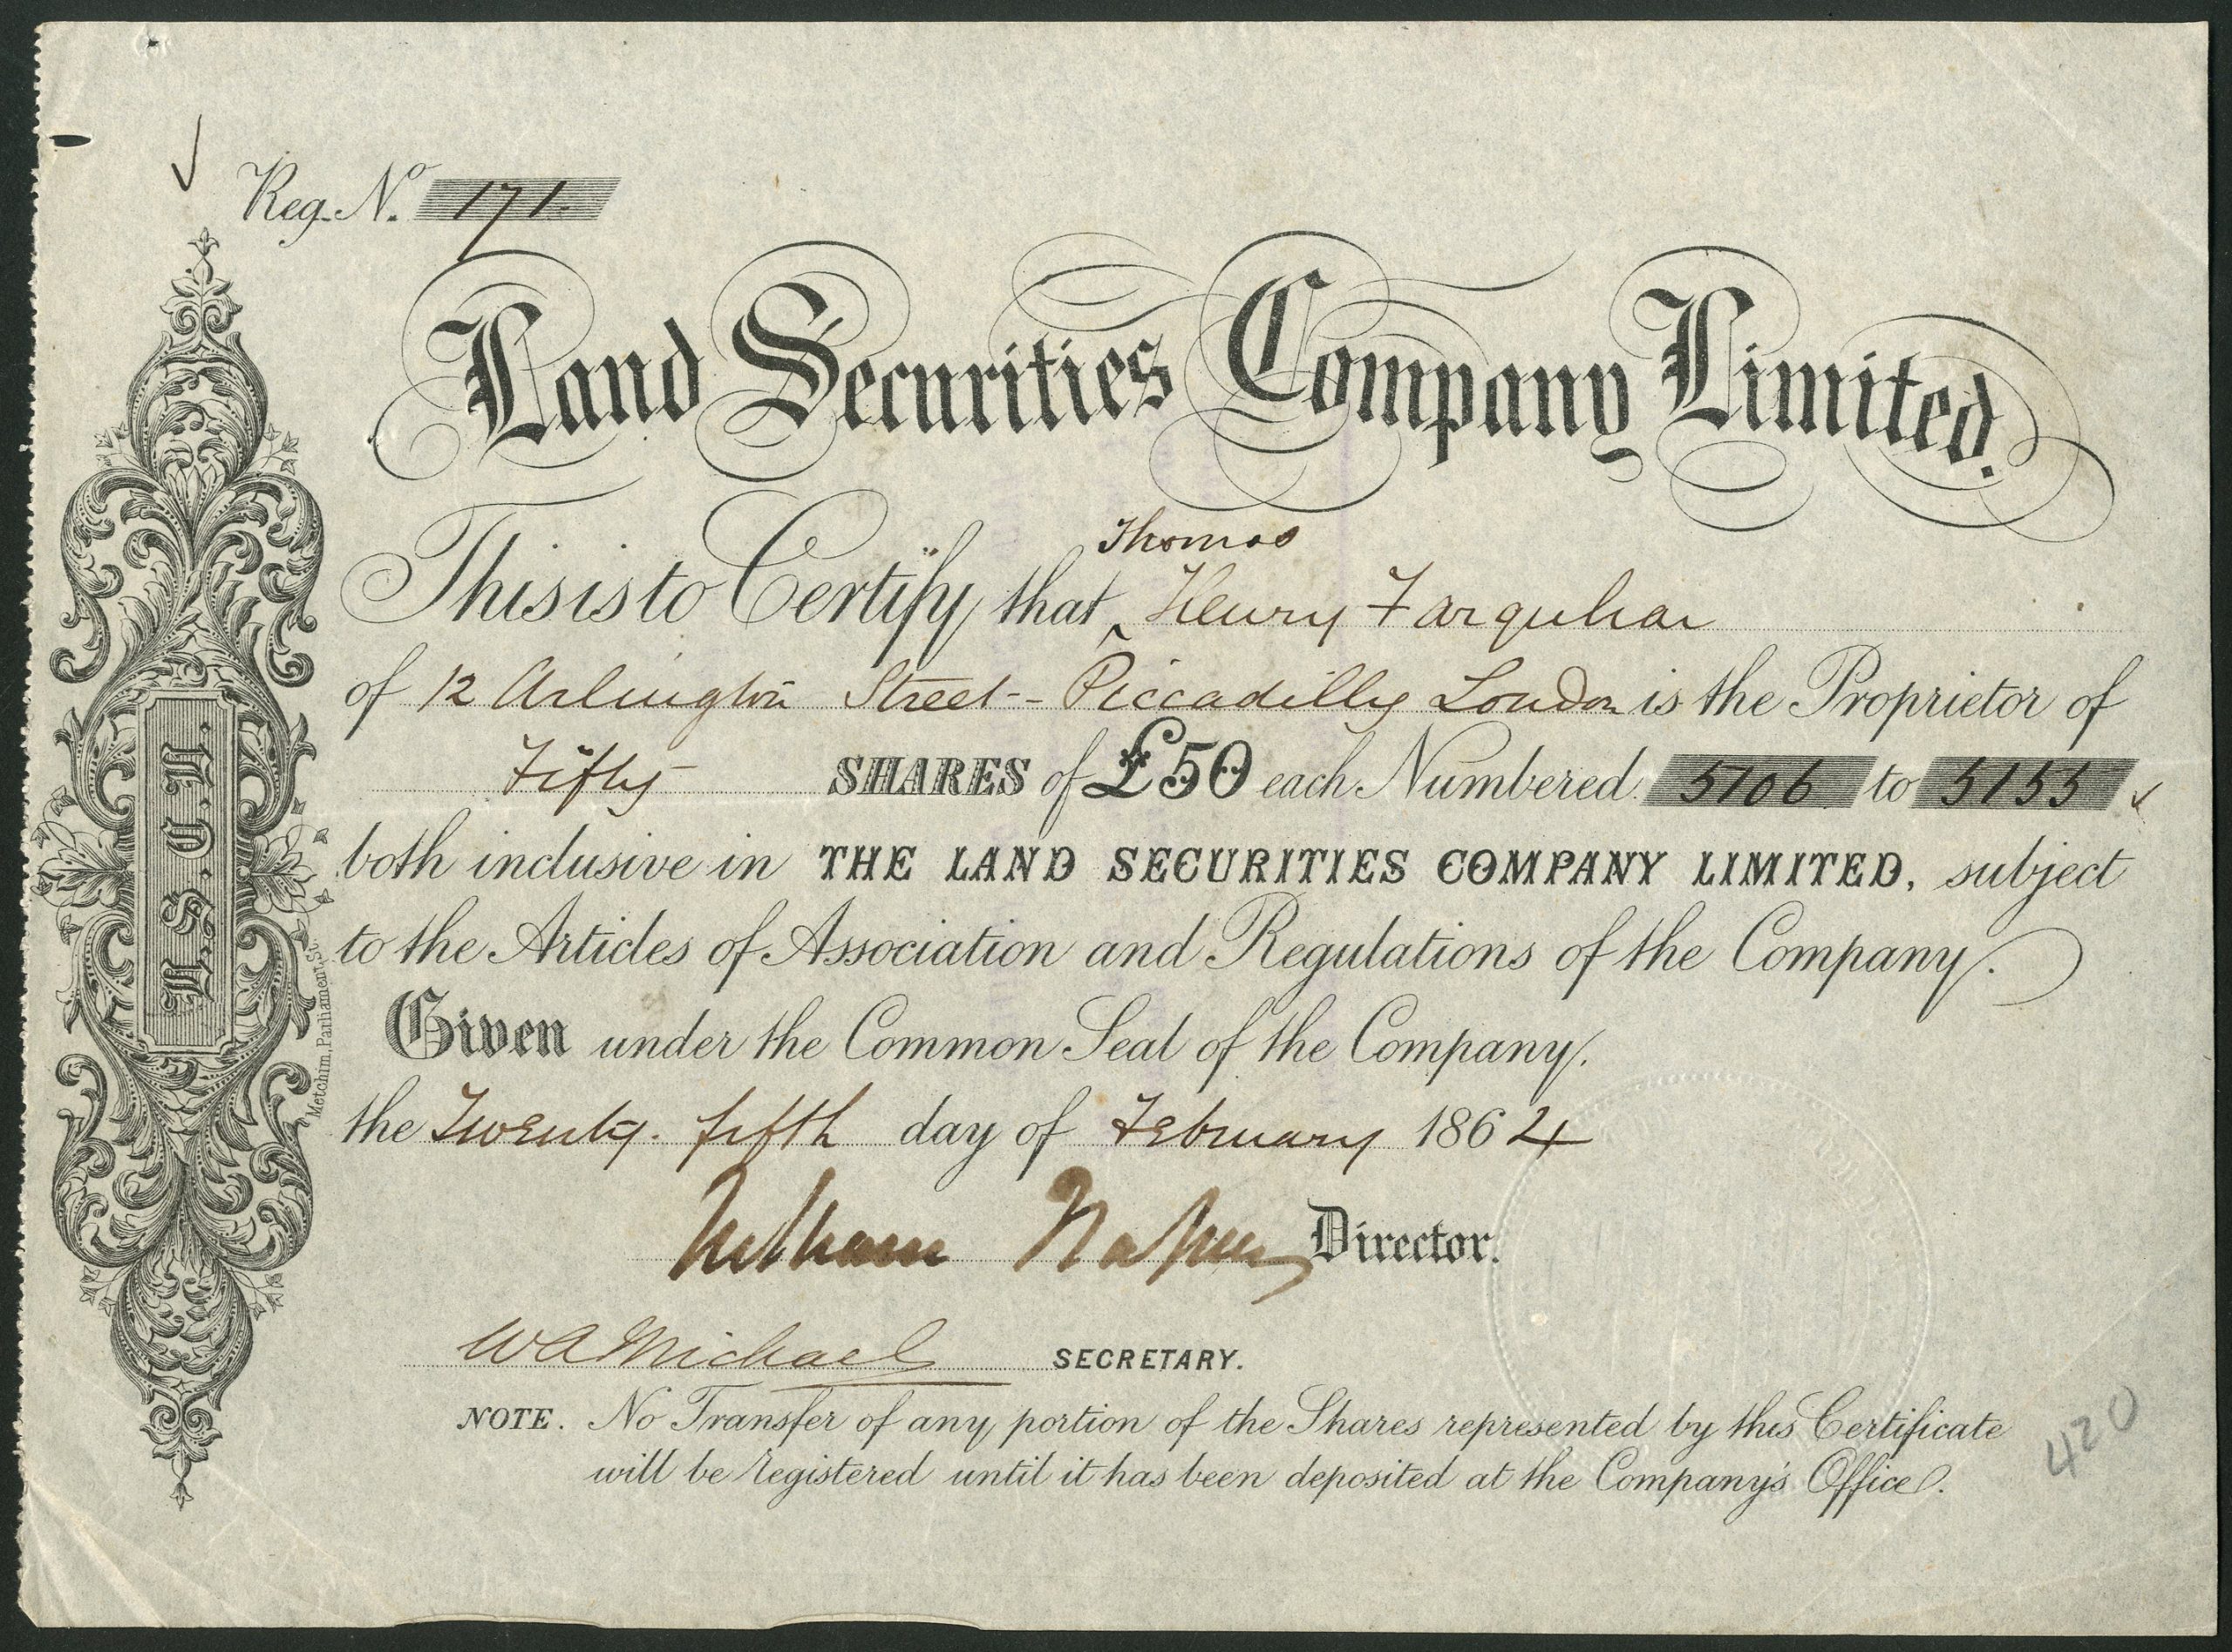 Reg. No. 171.
Land Securities Company Limited.
Thomas
This is to Certify that ‸ Henry Farquhar
of 12 Arlington Street - Piccadilly London is the Proprietor of
Fifty SHARES of £50 each Numbered 5106 to 5155
both inclusive in THE LAND SECURITIES COMPANY LIMITED, subject
to the Articles of Association and Regulations of the Company.
Given under the Common Seal of the Company.
the Twenty. fifth day of February 1864
William Director.
WA Michael SECRETARY.
NOTE. No Transfer of any portion of the Shares represented by this Certificate
will be registered until it has been deposited at the Company's Office.
L.S.C.L.
Metchim, Parliament St.
420